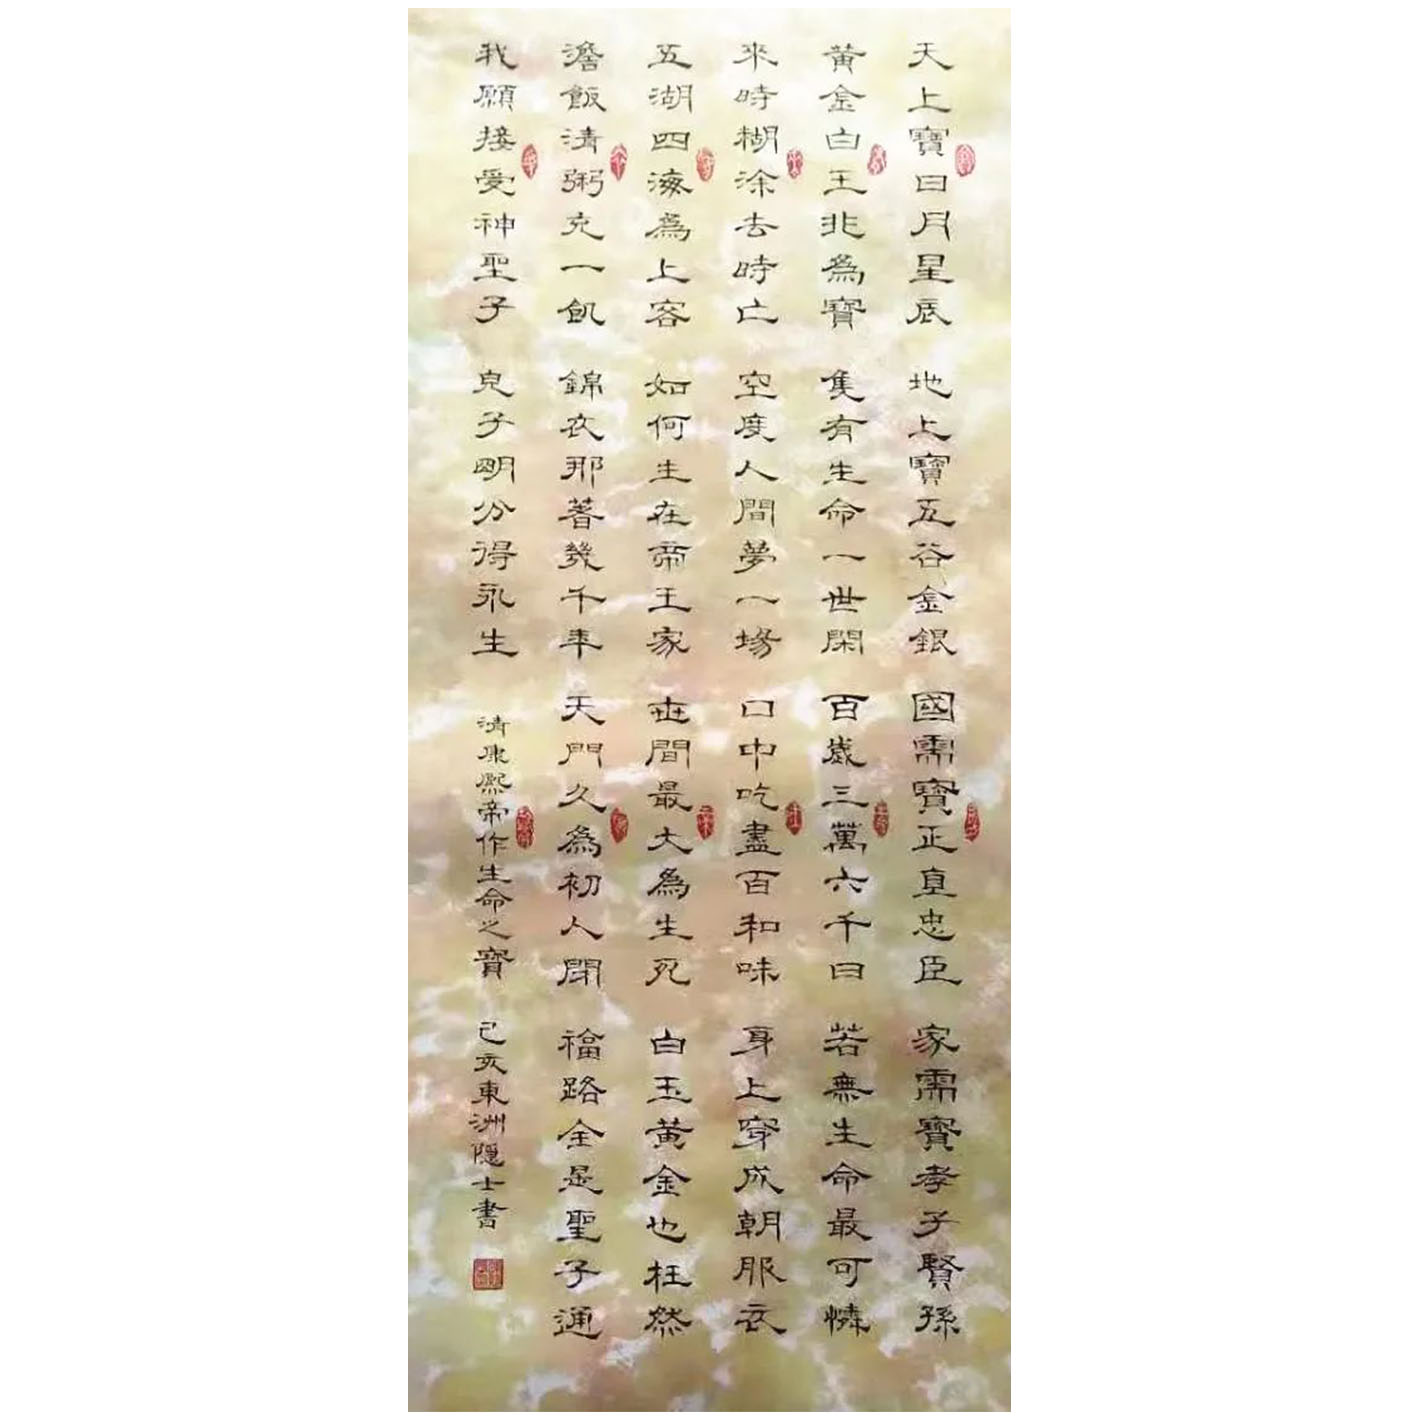 天上寶日月星辰 地上寶五谷金銀 國需寶正直忠臣 家需寶孝子賢孫
黃金白玉非為寶 隻有生命一世閑 百歲三萬六千日 若無生命最可憐
來時糊涂去時亡 空度人間夢一場 口中吃盡百和味 身上穿成朝服衣
五湖四海為上客 如何生在帝王家 世間最大為生死 白玉黃金也枉然
澹飯清粥充一飢 錦衣那著幾千年 天門久為初人閉 福路全是聖子通
我願接受神聖子 兒子明分得永生
清康熙帝作生命之寶 己亥東洲隱士書